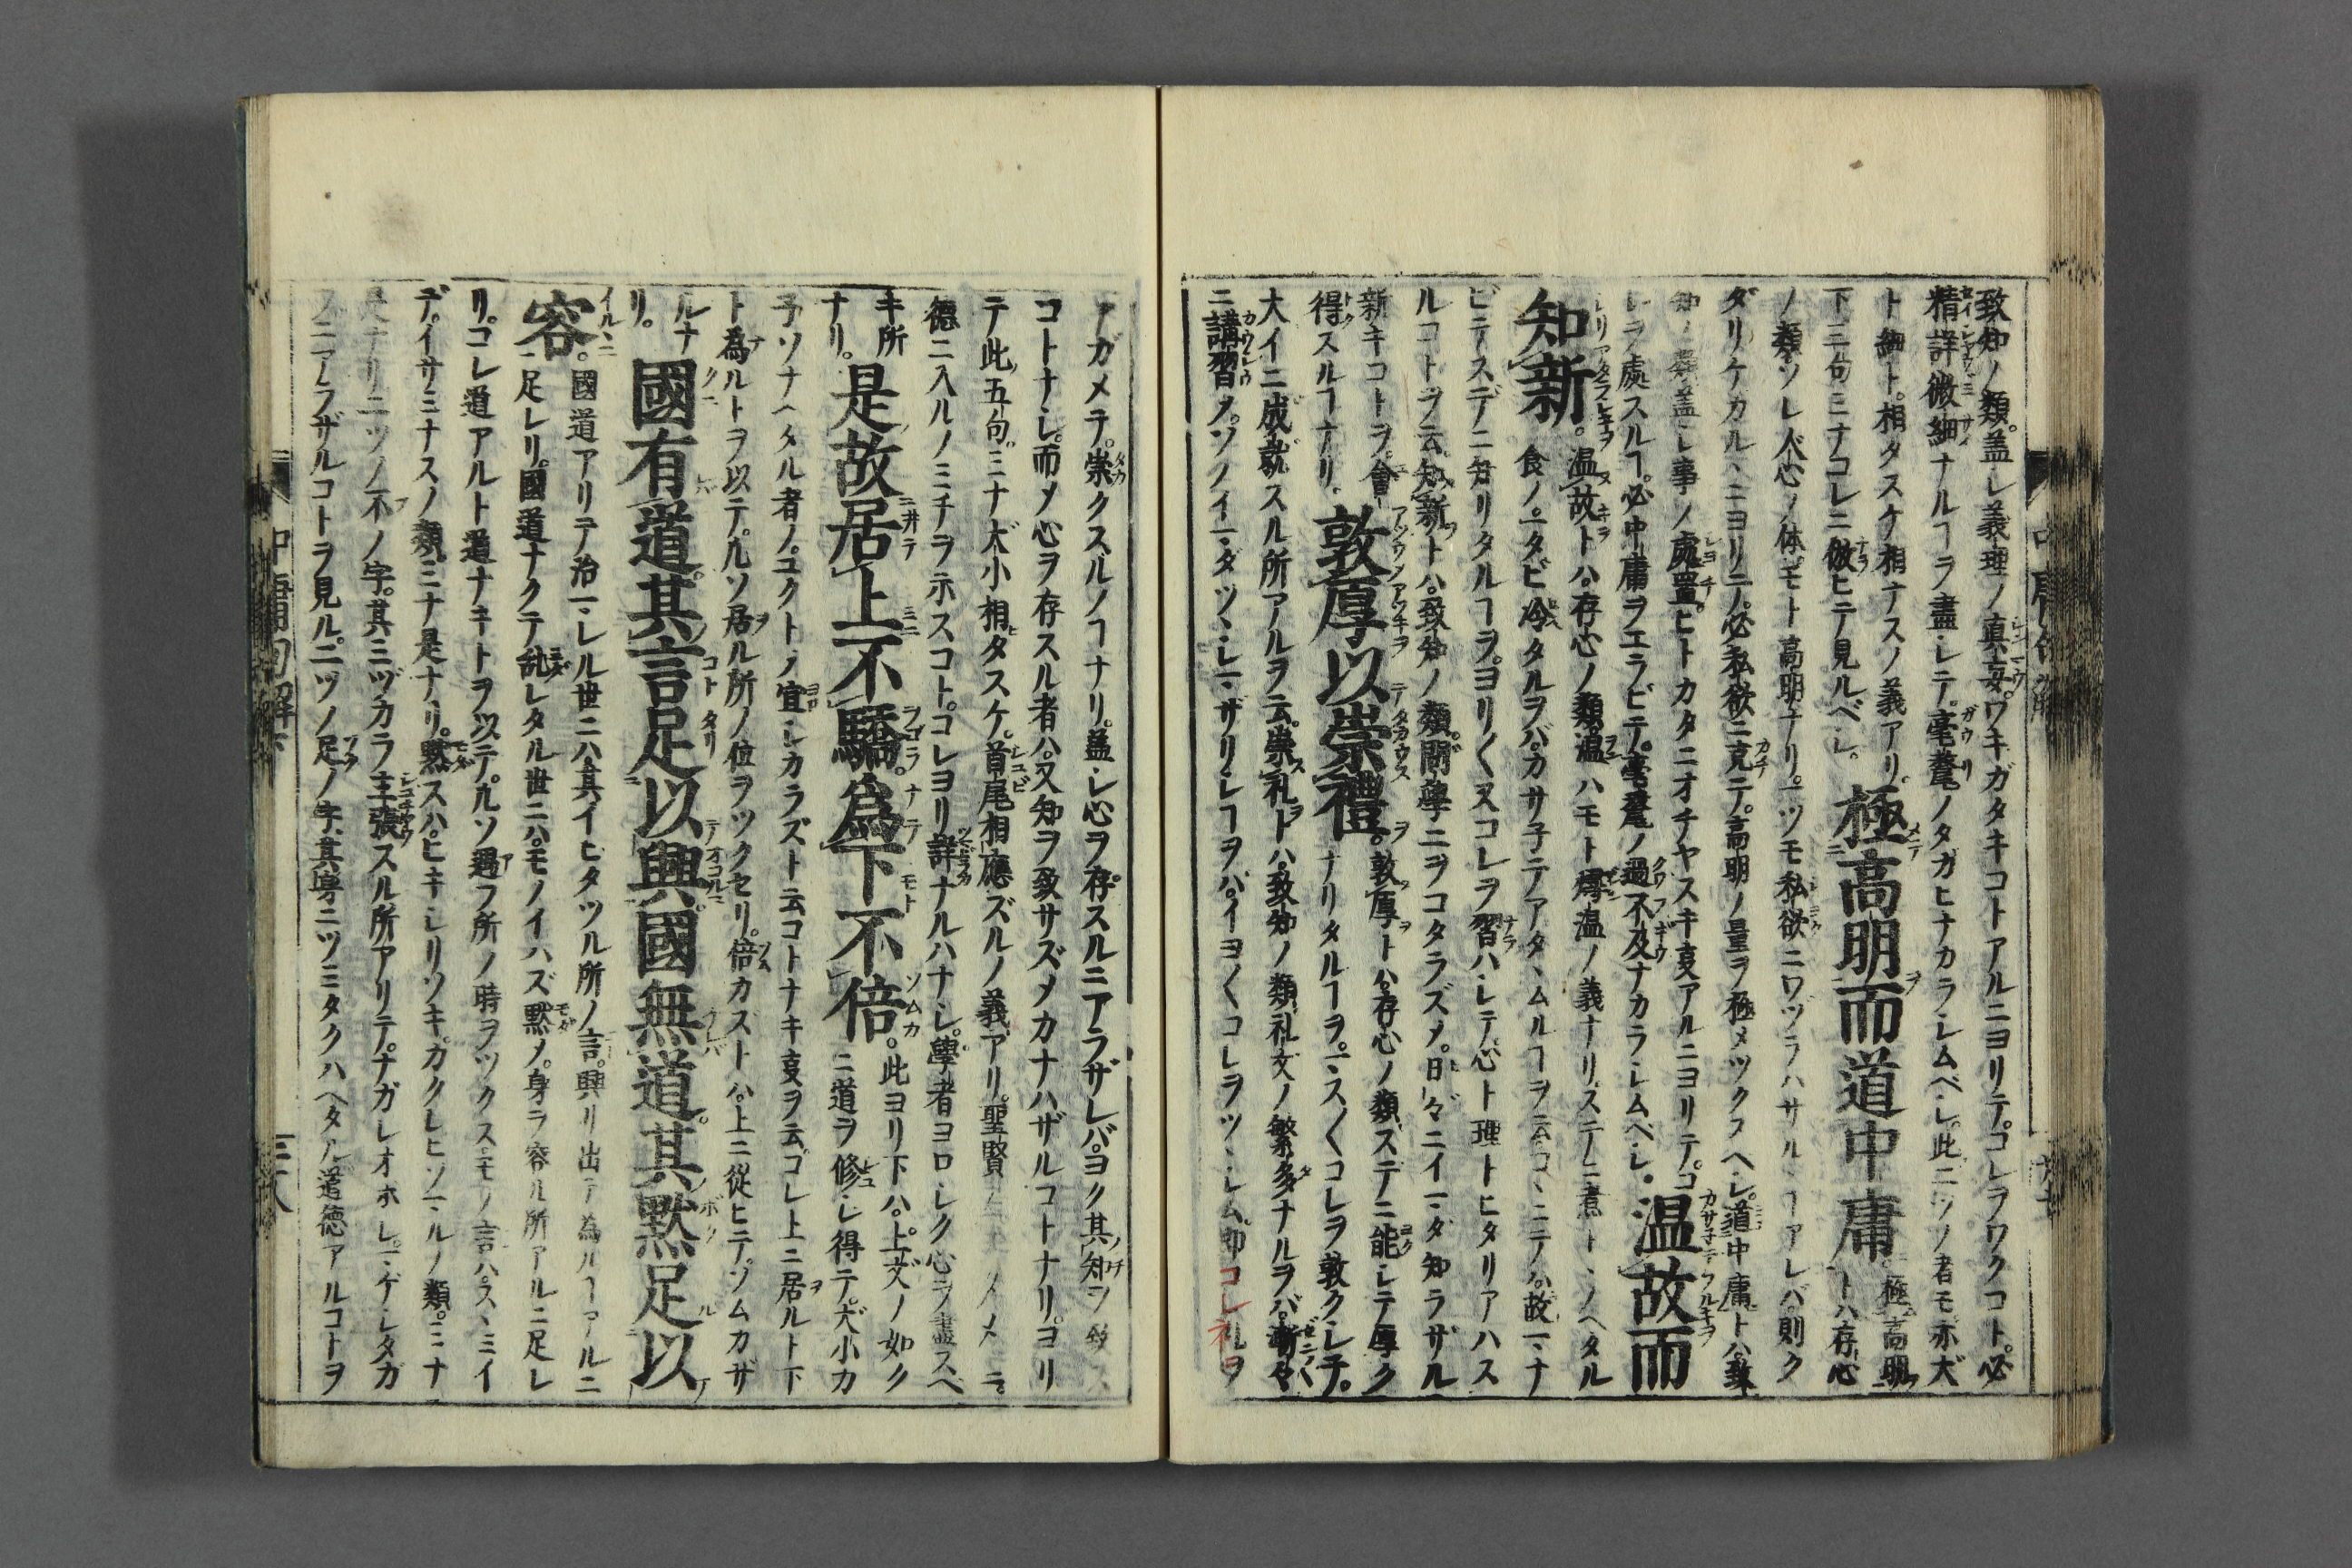 致知ノ類。盖シ義理ノ真妄。ワキガタキコトアルニヨリテ。コレヲワクコト。必
精詳微細ナルヿヲ盡シテ。毫釐。ノタガヒナカラシムベシ。此二ツノ者モ亦大
ト細ト。相タスケ相ナスノ義アリ。極高明
下三句ミナコレニ倣ヒテ見ルベシ。極高明而道中庸トハ。存心
ノ類ソレ人心ノ体モト高明ナリ。一ツモ私欲ニワヅラハサルヽヿアレバ則ク
ダリケカルヽニヨリテ。必私欲ニ克テ。高明ノ量ヲ極メツクスヘシ。道中庸トハ。致
知ノ類盖シ事ノ處置。ヒトカタニオチヤスキ叓アルニヨリテ。コ
レヲ處スルヿ。必中庸ヲエラビテ。毫釐ノ過不及ナカラシムベシ。温故而
知新。温故トハ。存心ノ類。温ハモト燖温ノ義ナリ。ステニ煮トヽノヘタル
食ノ一タビ冷タルヲバ。カサ子テアタヽムルヿヲ云。コヽニテハ。故マナ
ビテスデニ知リタルヿヲ。ヨリ〱又コレヲ習ハシテ心ト理トヒタリアハス
ルコトヲ云。知新トハ。致知ノ類。問學ニヲコタラズメ。日ビニイマダ知ラザル
新キコトヲ。會
得スルヿナリ。敦厚以崇禮。敦厚トハ。存心ノ類スデニ能シテ厚ク
ナリタルヿヲ。マス〱コレヲ敦クシテ。
大イニ成就スル所アルヲ云。崇礼トハ。致知ノ類。礼文ノ繁多ナルヲバ。漸々
ニ講習メ。ソノイマダツヽシマザリシヿヲバ。イヨ〱コレヲツヽシム。コレ礼ヲ
アガメテ。崇クスルノヿナリ。盖シ心ヲ存スルニアラザレバ。ヨク其知ヲ致ス
コトナシ。而メ心ヲ存スル者ハ。又知ヲ致サズメカナハザルコトナリ。ヨリ
テ此五句。ミナ大小相タスケ。首尾相應ズルノ義アリ。聖賢
德ニ入ルノミチヲ示スコト。コレヨリ詳ナルハナシ。學者ヨロシク心ヲ盡スベ
キ所
ナリ。是故居上不驕爲下不倍。此ヨリ下ハ。上文ノ如ク
ニ道ヲ修シ得テ。大小カ
子ソナヘタル者ノ。ユクトノ宜シカラズト云コトナキ叓ヲ云。ゴレ上ニ居ルト下
ト為ルトヲ以テ。凡ソ居ル所ノ位ヲツクセリ。倍カズトハ。上ニ從ヒテ。ソムカザ
ルナ
リ。國有道其言足以興國無道其默足以
容。國道アリテ治マレル世ニハ。其イヒタツル所ノ言。興リ出テ為ルヿアルニ
足レリ。國道ナクテ乱レタル世ニハ。モノイハズ默メ。身ヲ容ル所アルニ足レ
リ。コレ道アルト道ナキトヲ以テ。凡ソ遇フ所ノ時ヲツクス。モノ言ハスヽミイ
デ。イサミナスノ類。ミナ是ナリ。默スハ。ヒキシリソキ。カクレヒソマルノ類。ミナ
是ナリ二ツノ不ノ字。其ミヅカラ主張スル所アリテ。ナガレオホレ。マゲシタガ
フニアラザルコトヲ見ル。二ツノ足ノ字。其身ニツミタクハヘタル道德アルコトヲ
中庸句解下 三八